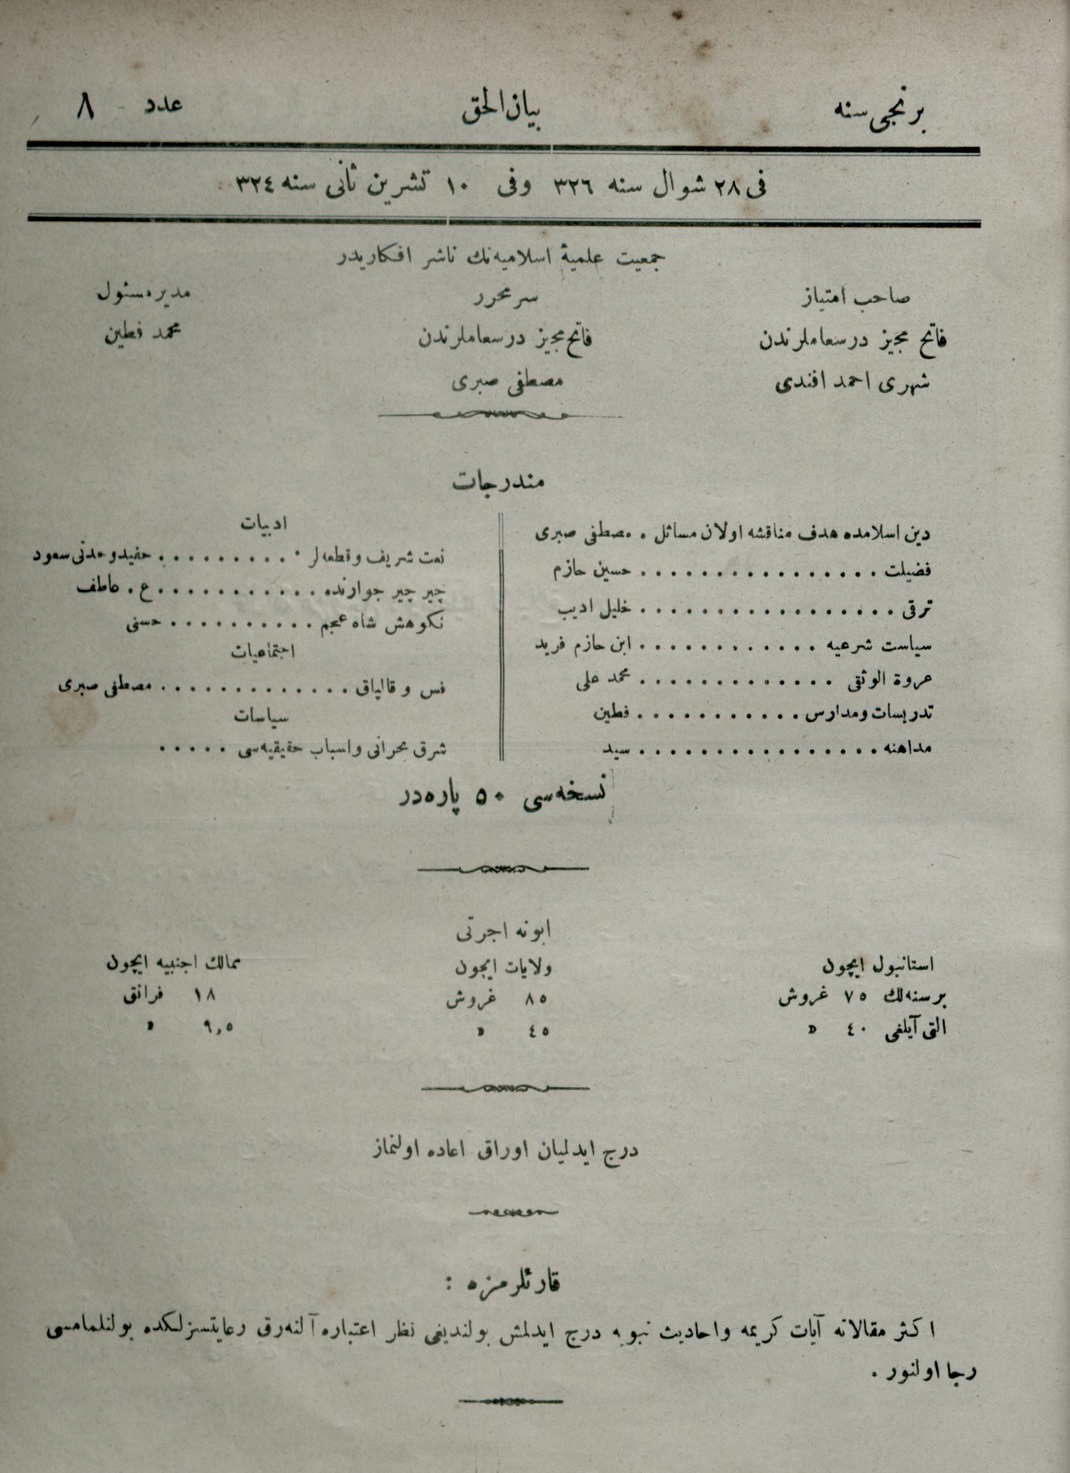 برنجی سنه   بیان الحق   عدد ٨
فی ٢٨ شوال سنه ٣٢٦ وفی ١٠ تشرین ثانی سنه ٣٢٤
جمعیت علمیۀ اسلامیه‌نك ناشر افكاریدر
صاحب امتیاز   سر محرر   مدیر مسئول
فاتح مجیز درسعاملرندن   فاتح مجیز درسعاملرندن   محمد فطین
شهری احمد افندی   مصطفی صبری
مندرجات
دین اسلامده هدف مناقشه اولان مسائل . مصطفی صبری
فضیلت . . . . . . . . . . . . . . . حسین حازم
ترقی . . . . . . . . . . . . . . . . خلیل ادیب
سیاست شرعیه . . . . . . . . . . . ابن حازم فرید
عروة الوثقی . . . . . . . . . . . . محمد علی
تدریسات ومدارس . . . . . . . . . . . فطین
مداهنه . . . . . . . . . . . . . . . . سید
ادبیات
نعت شریف وقطعه‌لر . . . . . . . . . . حفیدوحدتی سعود
چیر چیر جوارنده . . . . . . . . . . . ع . عاطف
نكوهش شاه عجم . . . . . . . . . . حسنی
اجتماعیات
فس و قالپاق . . . . . . . . . . . . . مصطفی صبری
سیاسات
شرق بحرانی واسباب حقیقیه‌سی . . . . .
نسخه‌سی ٥٠ پاره‌در
ابونه اجرتی
استانبول ایچون   ولایات ایچون   ممالك اجنبیه ایچون
بر سنه‌لك ٧٥ غروش   ٨٥ غروش   ١٨ فرانق
التی آیلغی ٤٠ »   ٤٥ »   ٩,٥ »
درج ایدلمیان اوراق اعاده اولنماز
قارئلرمزه :
اكثر مقالاته آیات كریمه واحادیث نبویه درج ایدلمش بولندیغی نظر اعتباره آلنه‌رق رعایتسزلكده بولنلمامسی
رجا اولنور .